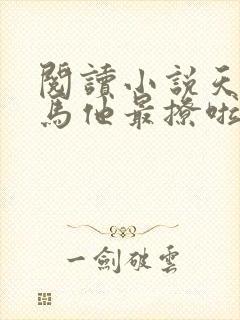 閱讀小説天
馬他最撩啦
一劍破雲